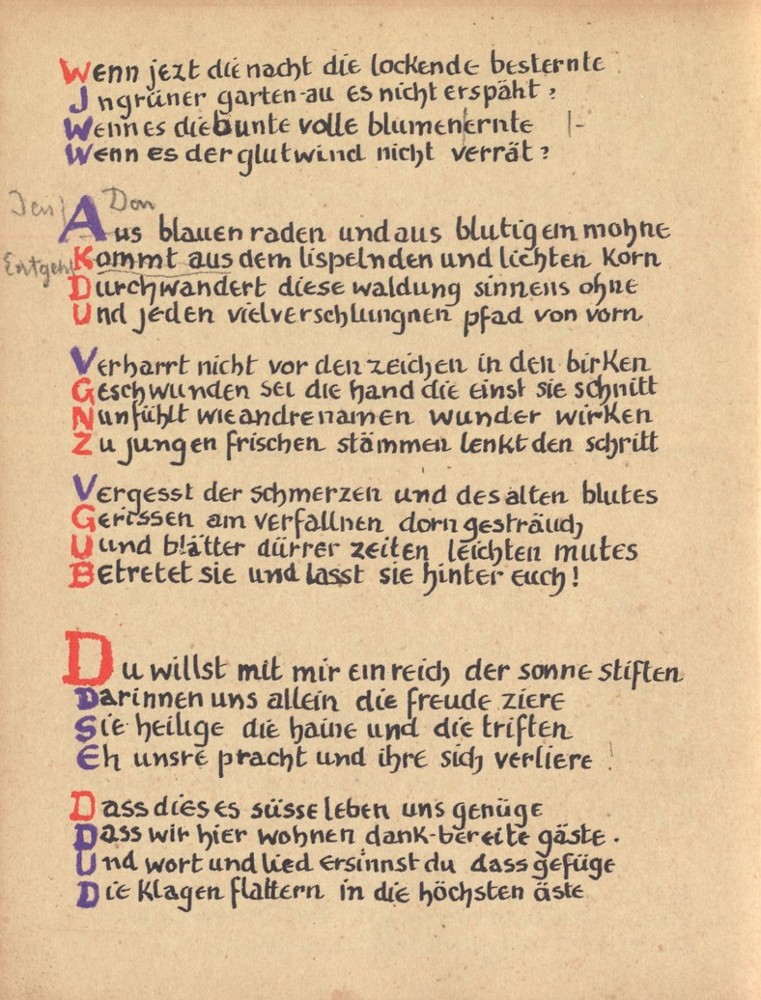 Wenn jezt die nacht die lockende besternte
In grüner garten-au es nicht erspäht ,
Wenn es die bunte volle blumenernte |-
Wenn es der glutwind nicht verrät ?
Den Don
Aus blauen raden und aus blutigem mohne
Entgeht
Kommt aus dem lispelnden und lichten Korn
Durchwandert diese waldung sinnens ohne
Und jeden vielverschlungnen pfad von vorn
Verharrt nicht vor den zeichen in den birken
Geschwunden sei die hand die einst sie schnitt
Nun fühlt wie andre namen wunder wirken
Zu jungen frischen stämmen lenkt den schritt
Vergesst der schmerzen und des alten blutes
Gerissen am verfallnen dorngesträuch
Uund blätter dürrer zeiten leichten mutes
Betretet sie und lasst sie hinter euch !
Du willst mit mir ein reich der sonne stiften
Darinnen uns allein die freude ziere
Sie heilige die haine und die triften
Eh unsre pracht und ihre sich verliere !
Dass dieses süsse leben uns genüge
Dass wir hier wohnen dank-bereite gäste .
Und wort und lied ersinnst du dass gefüge
Die Klagen flattern in die höchsten äste